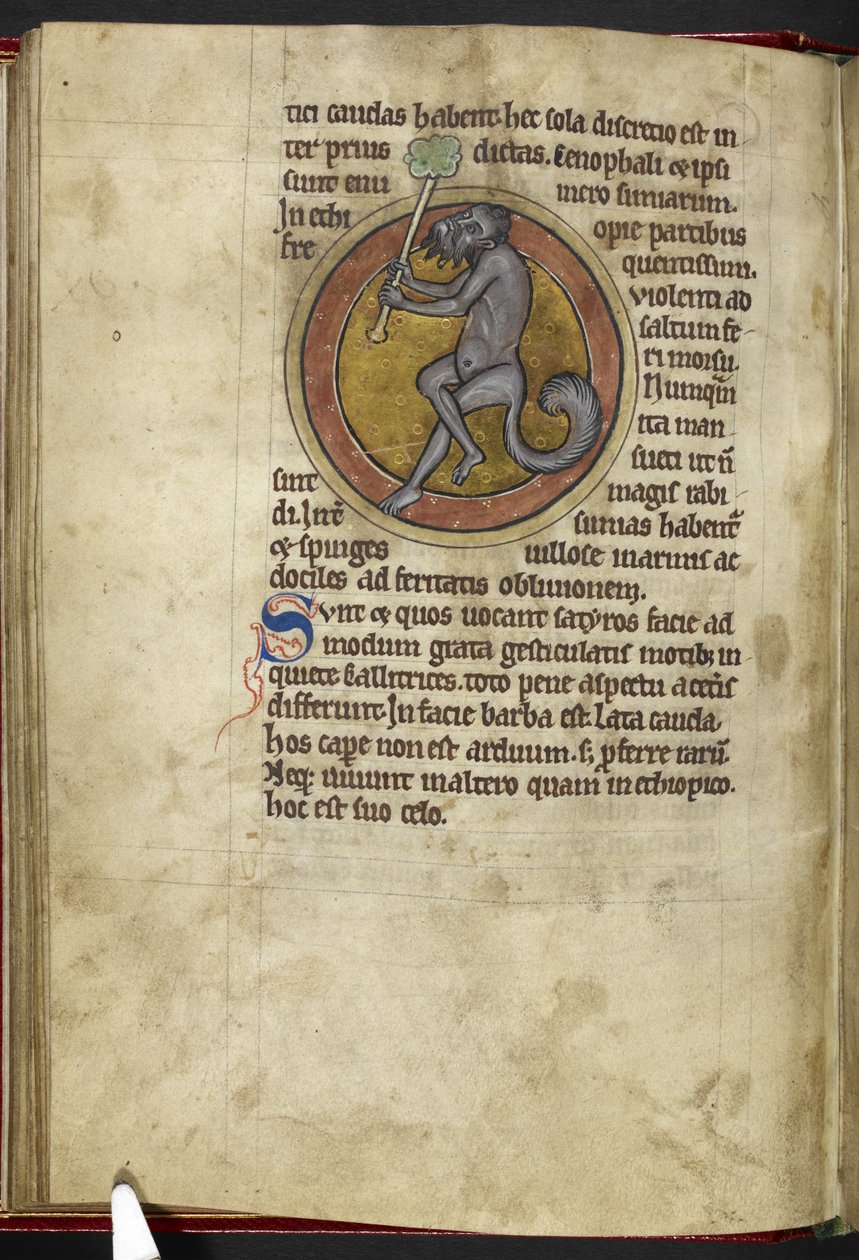 tici caudas habent. hec sola discretio est in
ter prius dictas. Cenophali & ipsi
sunt enu mero simiarum.
In ethi opie partibus
fre quentissimi.
violenti ad
saltum fe
ri morsu.
Numqm̄
ita man
sueti ut n̄
sint magis rabi
di. Int̄ simias habent̄
& spinges uillose in armis ac
dociles ad feritatis obliuionem.
Sunt & quos uocant satyros facie ad
modum grata gesticulatis motibꝫ in
quiete Callitrices. toto pene aspectu a cet̄is
differunt. In facie barba est. Lata cauda.
hos cape non est arduum. sꝫ ꝓferre rarū.
Neqꝫ uiuunt in altero quam in ethiopico.
hoc est suo celo.